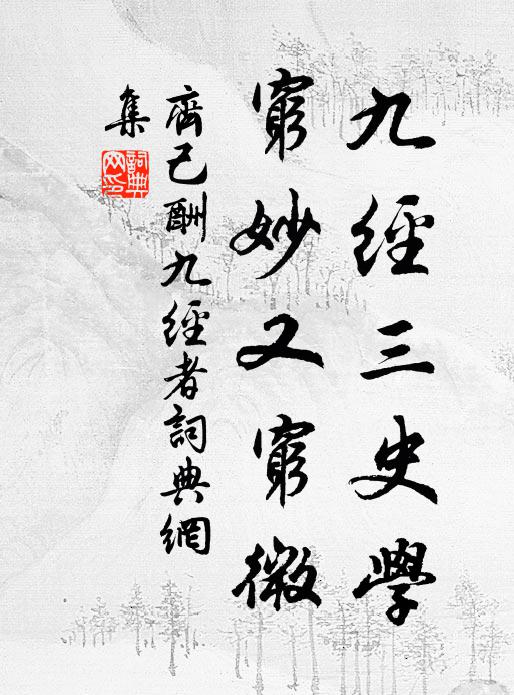 九經三史學
窮妙又窮微
齊己酬九經者詞典網
集
詞典網印